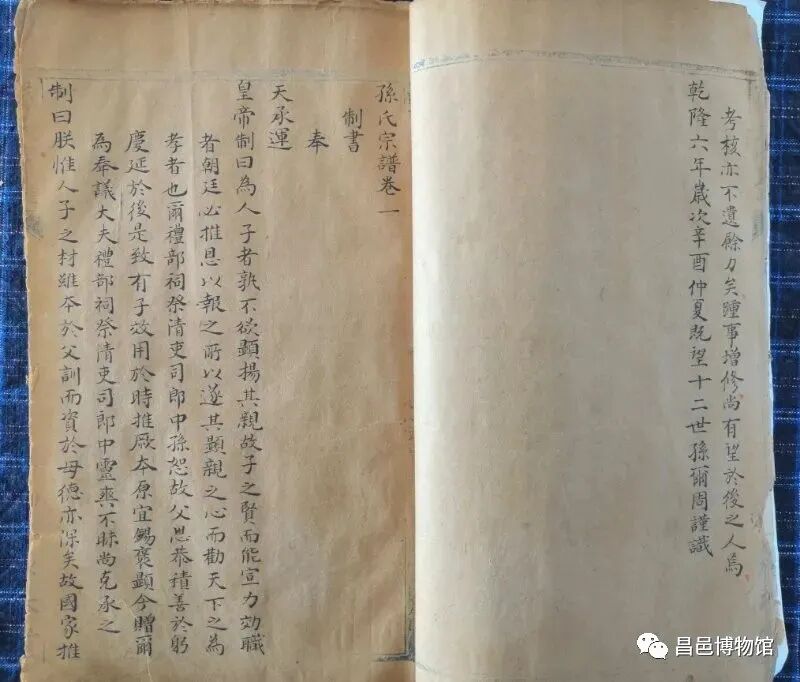 考核亦不遺餘力矣踵事增修尚有望於後之人焉
乾隆六年歲次辛酉仲夏既望十二世孫爾周謹識
孫氏宗譜卷一
制書
奉
天承運
皇帝制曰為人子者孰不欲顯揚其親故子之賢而能宣力効職
者朝廷必推恩以報之所以遂其顯親之心而勸天下之為
孝者也爾禮部祠祭清吏司郎中孫恕故父思恭積善於躬
慶延於後是致有子效用於時推厥本原宜錫褒顯今贈爾
為奉議大夫禮部祠祭清吏司郎中靈爽不昧尚克承之
制曰朕惟人子之材雖本於父訓而資於母德亦深矣故國家推
昌邑博物馆